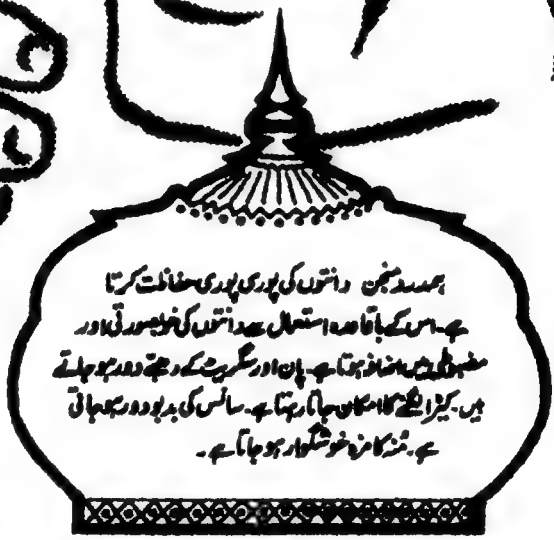 ہمدرد منجن دانتوں کی پوری پوری حفاظت کرتا
ہے۔ اس کے باقاعدہ استعمال سے دانتوں کی خوبصورتی اور
مضبوطی میں اضافہ ہوتا ہے۔ پان اور سگریٹ کے دھبے دور ہو جاتے
ہیں۔ کیڑا لگنے کا امکان جاتا رہتا ہے۔ سانس کی بدبو دور ہو جاتی
ہے۔ مُنہ کا مزہ خوشگوار ہو جاتا ہے۔